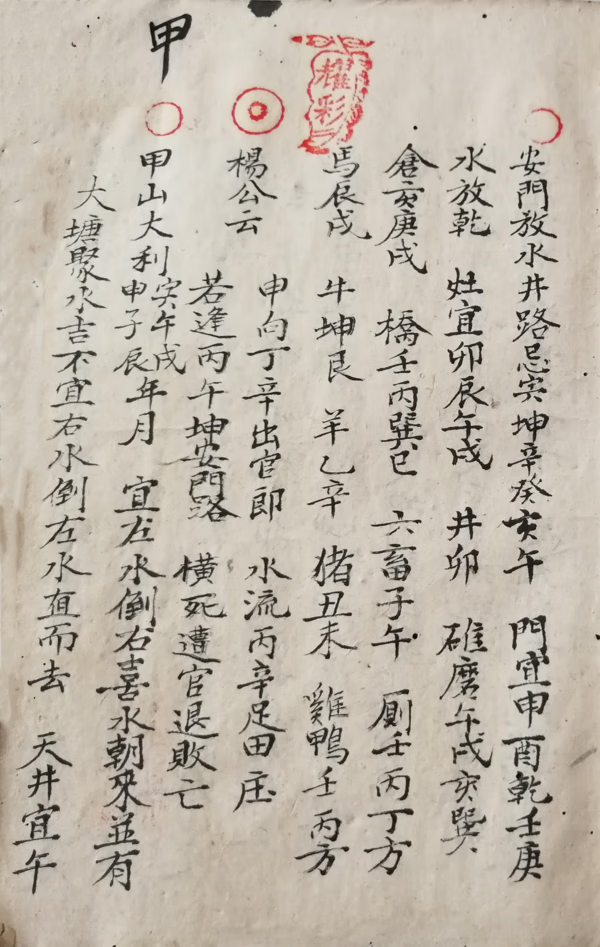 安門放水井路忌寅坤辛癸亥午　門宜申酉乾壬庚
水放乾　灶宜卯辰午戌　井卯　碓磨午戌亥巽
倉亥庚戌　橋壬丙巽巳　六畜子午　厠壬丙丁方
馬辰戌　牛坤艮　羊乙辛　猪丑未　雞鴨壬丙方
楊公云　申向丁辛出官郎　水流丙辛足田庄
若逢丙午坤安門路　橫死遭官退敗亡
甲
甲山大利寅午戌申子辰年月　宜左水倒右喜水朝來並有
大塘聚水吉不宜右水倒左水直而去　天井宜午
耀彩